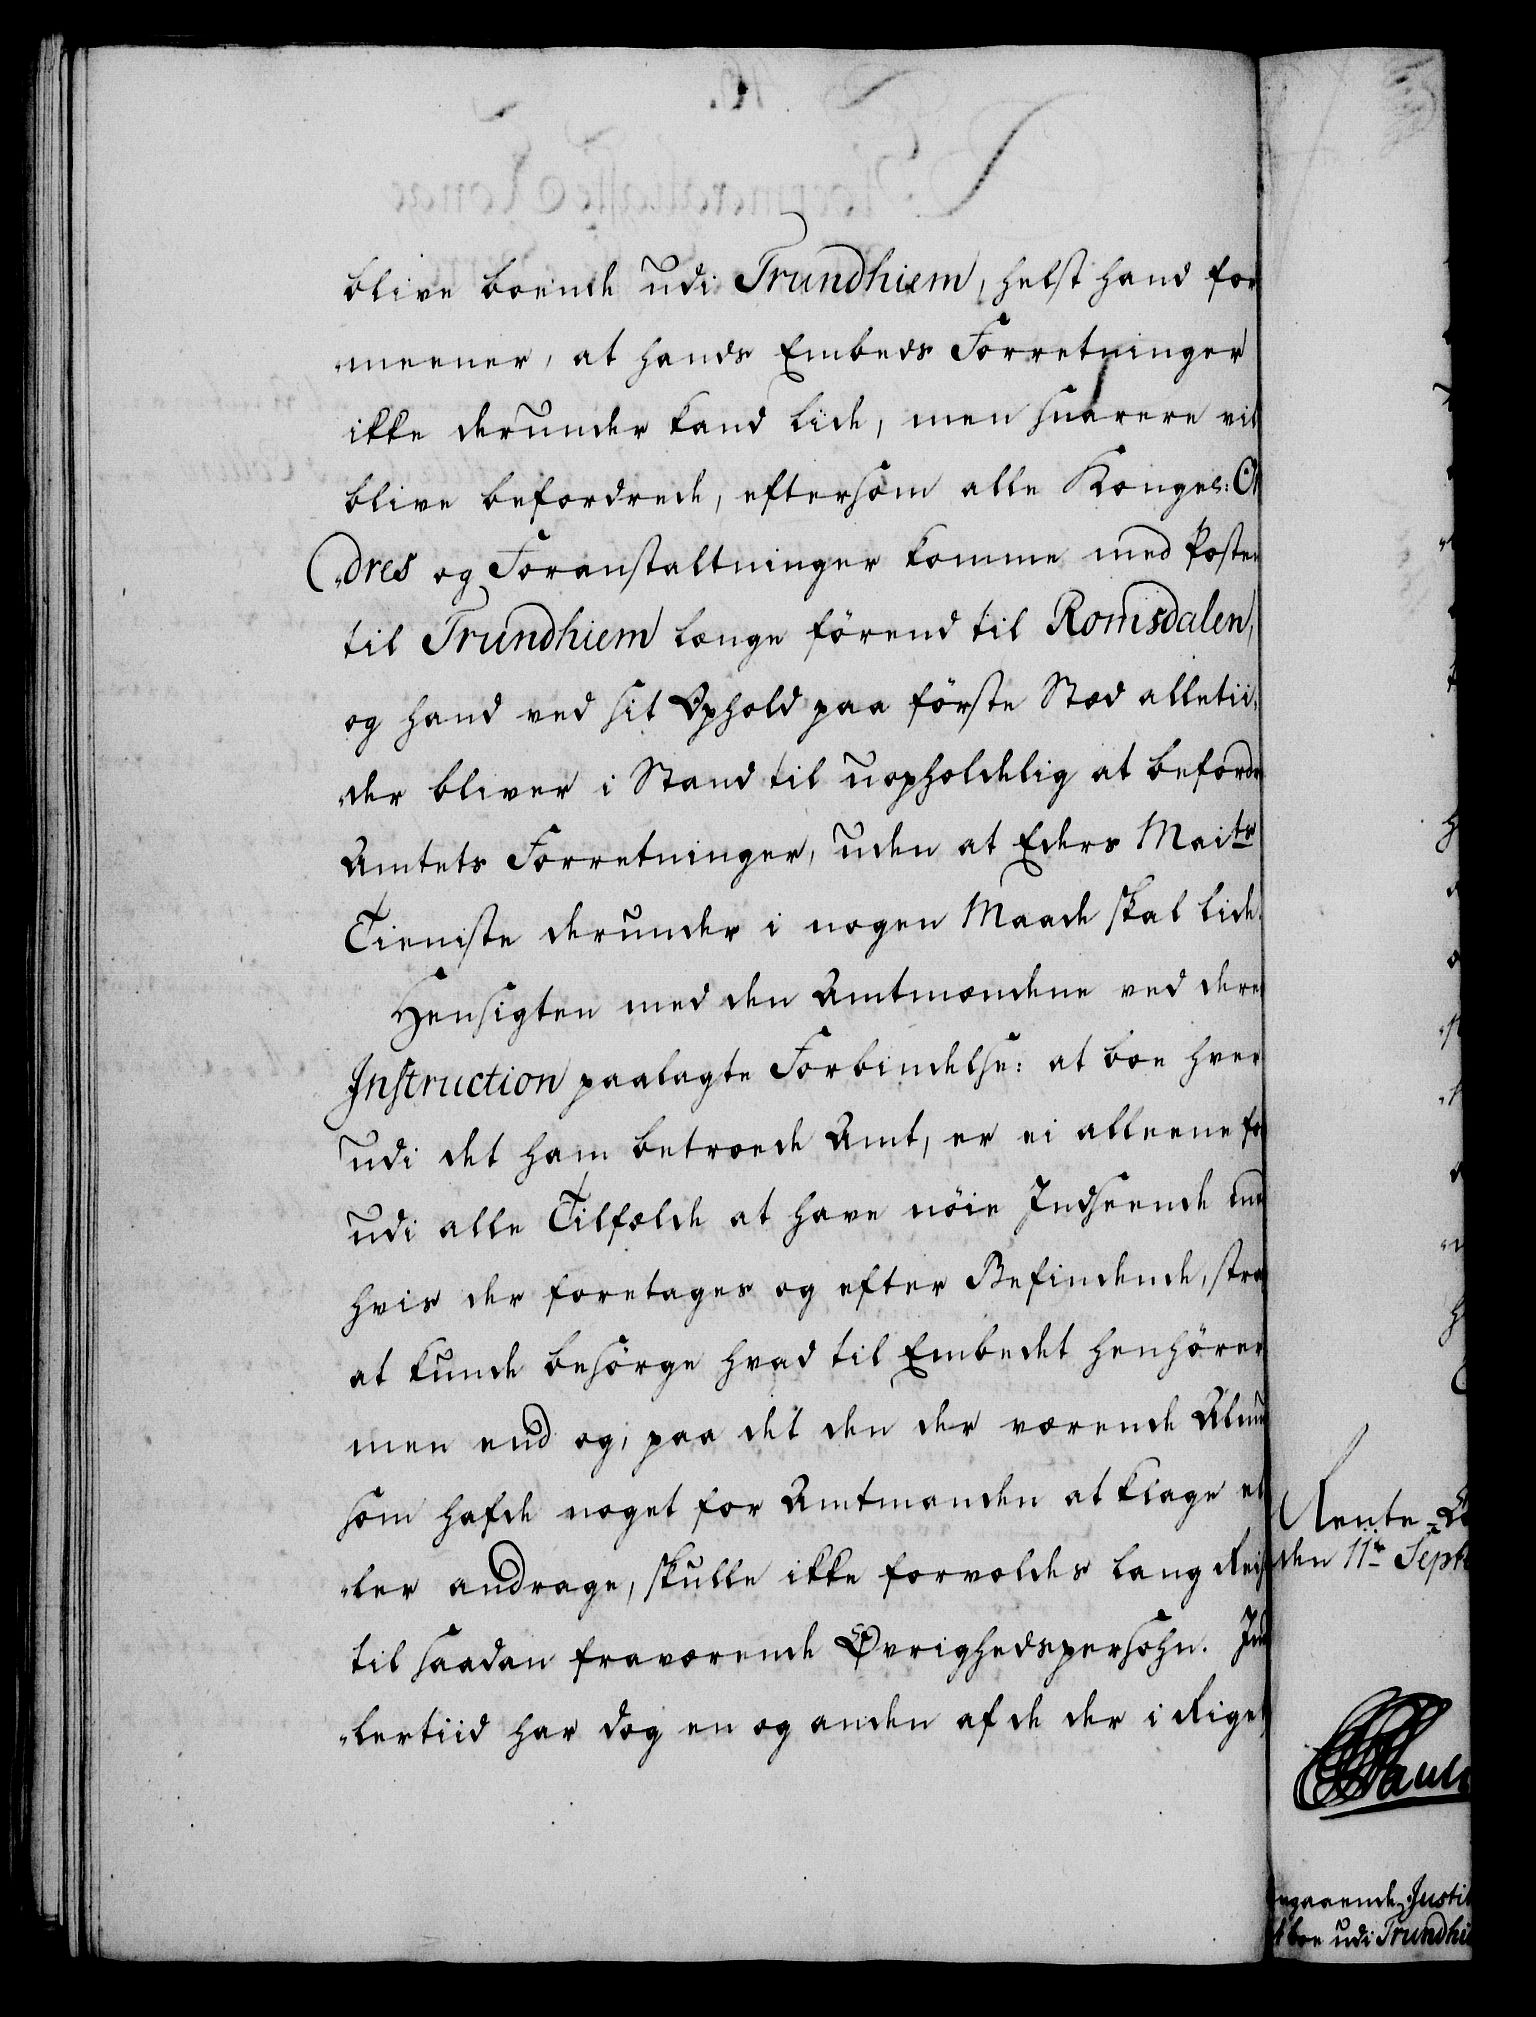 blive boende udi Trundhiem, helst hand for
meener, at hands Embeds Forretninger
ikke derunder kand lide, men snarere vil
blive befordrede, eftersom alle Konges: Or
dres og Foranstaltninger komme med Posten
til Trundhiem længe förend til Romsdalen,
og hand ved sit Ophold paa förste Stæd alletii,
der bliver i Stand til uopholdelig at befordre
Amtets Forretninger, uden at Eders Maits
Tieniste derunder i nogen Maade skal lide.
Hensigten med den Amtmændene ved deres
Instruction paalagte Forbindelse: at boe hver
udi det ham betroede Amt, er ei alleene for
udi alle Tilfælde at have nöie Indseende med
hvis der foretages og efter Befindende, strax
at kunde besörge hvad til Embedet henhörer
men end og, paa det den der værende Almue
som hafde noget for Amtmanden at klage el
ler andrage, skulle ikke forvoldes lang Reise
til saadan fraværende Øvrighedspersohn. Im
lertiid har dog en og anden af de der i Riget
Rente
den 11te Sept
angaaende Justit
at boe udi Trundhie